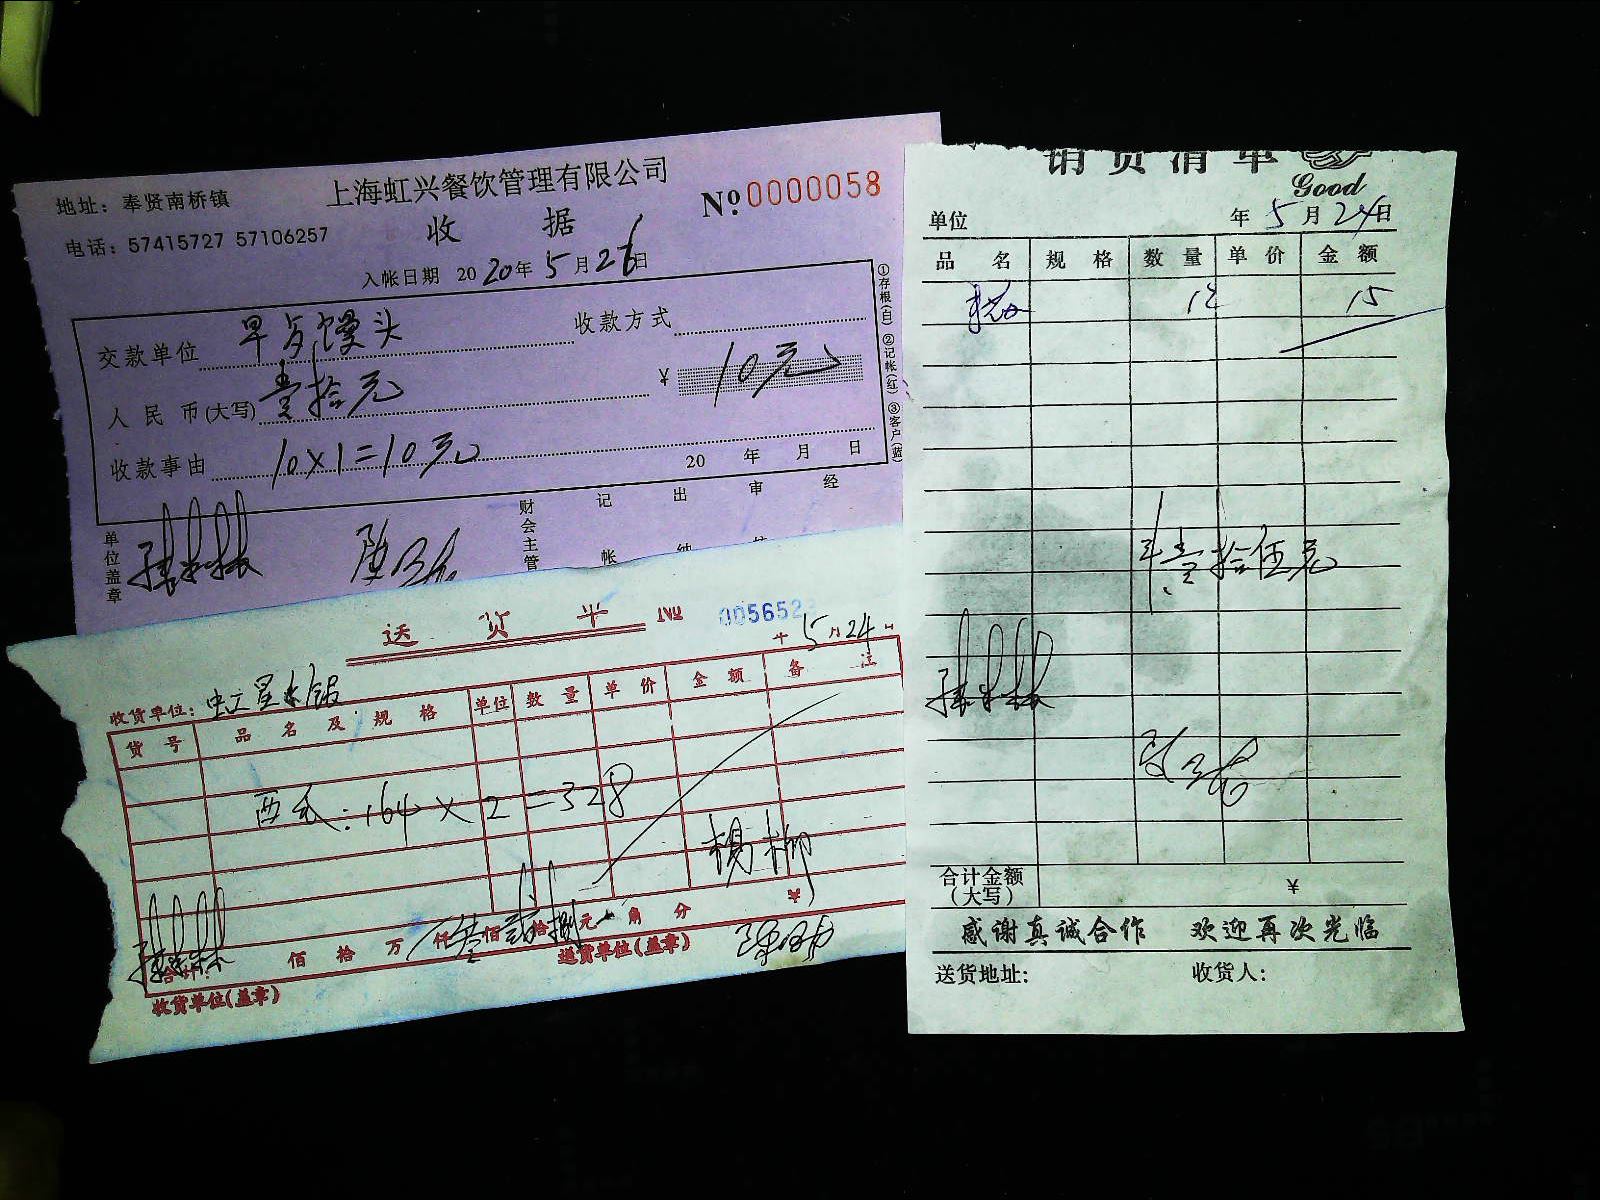 上海虹兴餐饮管理有限公司
地址：奉贤南桥镇
№ 0000058
电话：57415727 57106257
收 据
入帐日期 2020年5月26日
交款单位 早点馒头 收款方式
人民币(大写) 壹拾元 ¥ 10元
收款事由 10×1=10元
20 年 月 日
①存根(白) ②记帐(红) ③客户(蓝)
单位盖章
财会主管 记帐 出纳 审 经
送 货
№ 005652
5月24
收货单位：虹星
货号 品名及规格 单位 数量 单价 金额 备注
西瓜：164×2=328
杨柳
合计： 佰 拾 万 仟叁佰贰拾捌元 角 分 ¥
收货单位(盖章) 送货单位(盖章)
销货清单
Good
单位 年5月24日
品名 规格 数量 单价 金额
15
壹拾伍元
合计金额(大写) ¥
感谢真诚合作 欢迎再次光临
送货地址： 收货人：